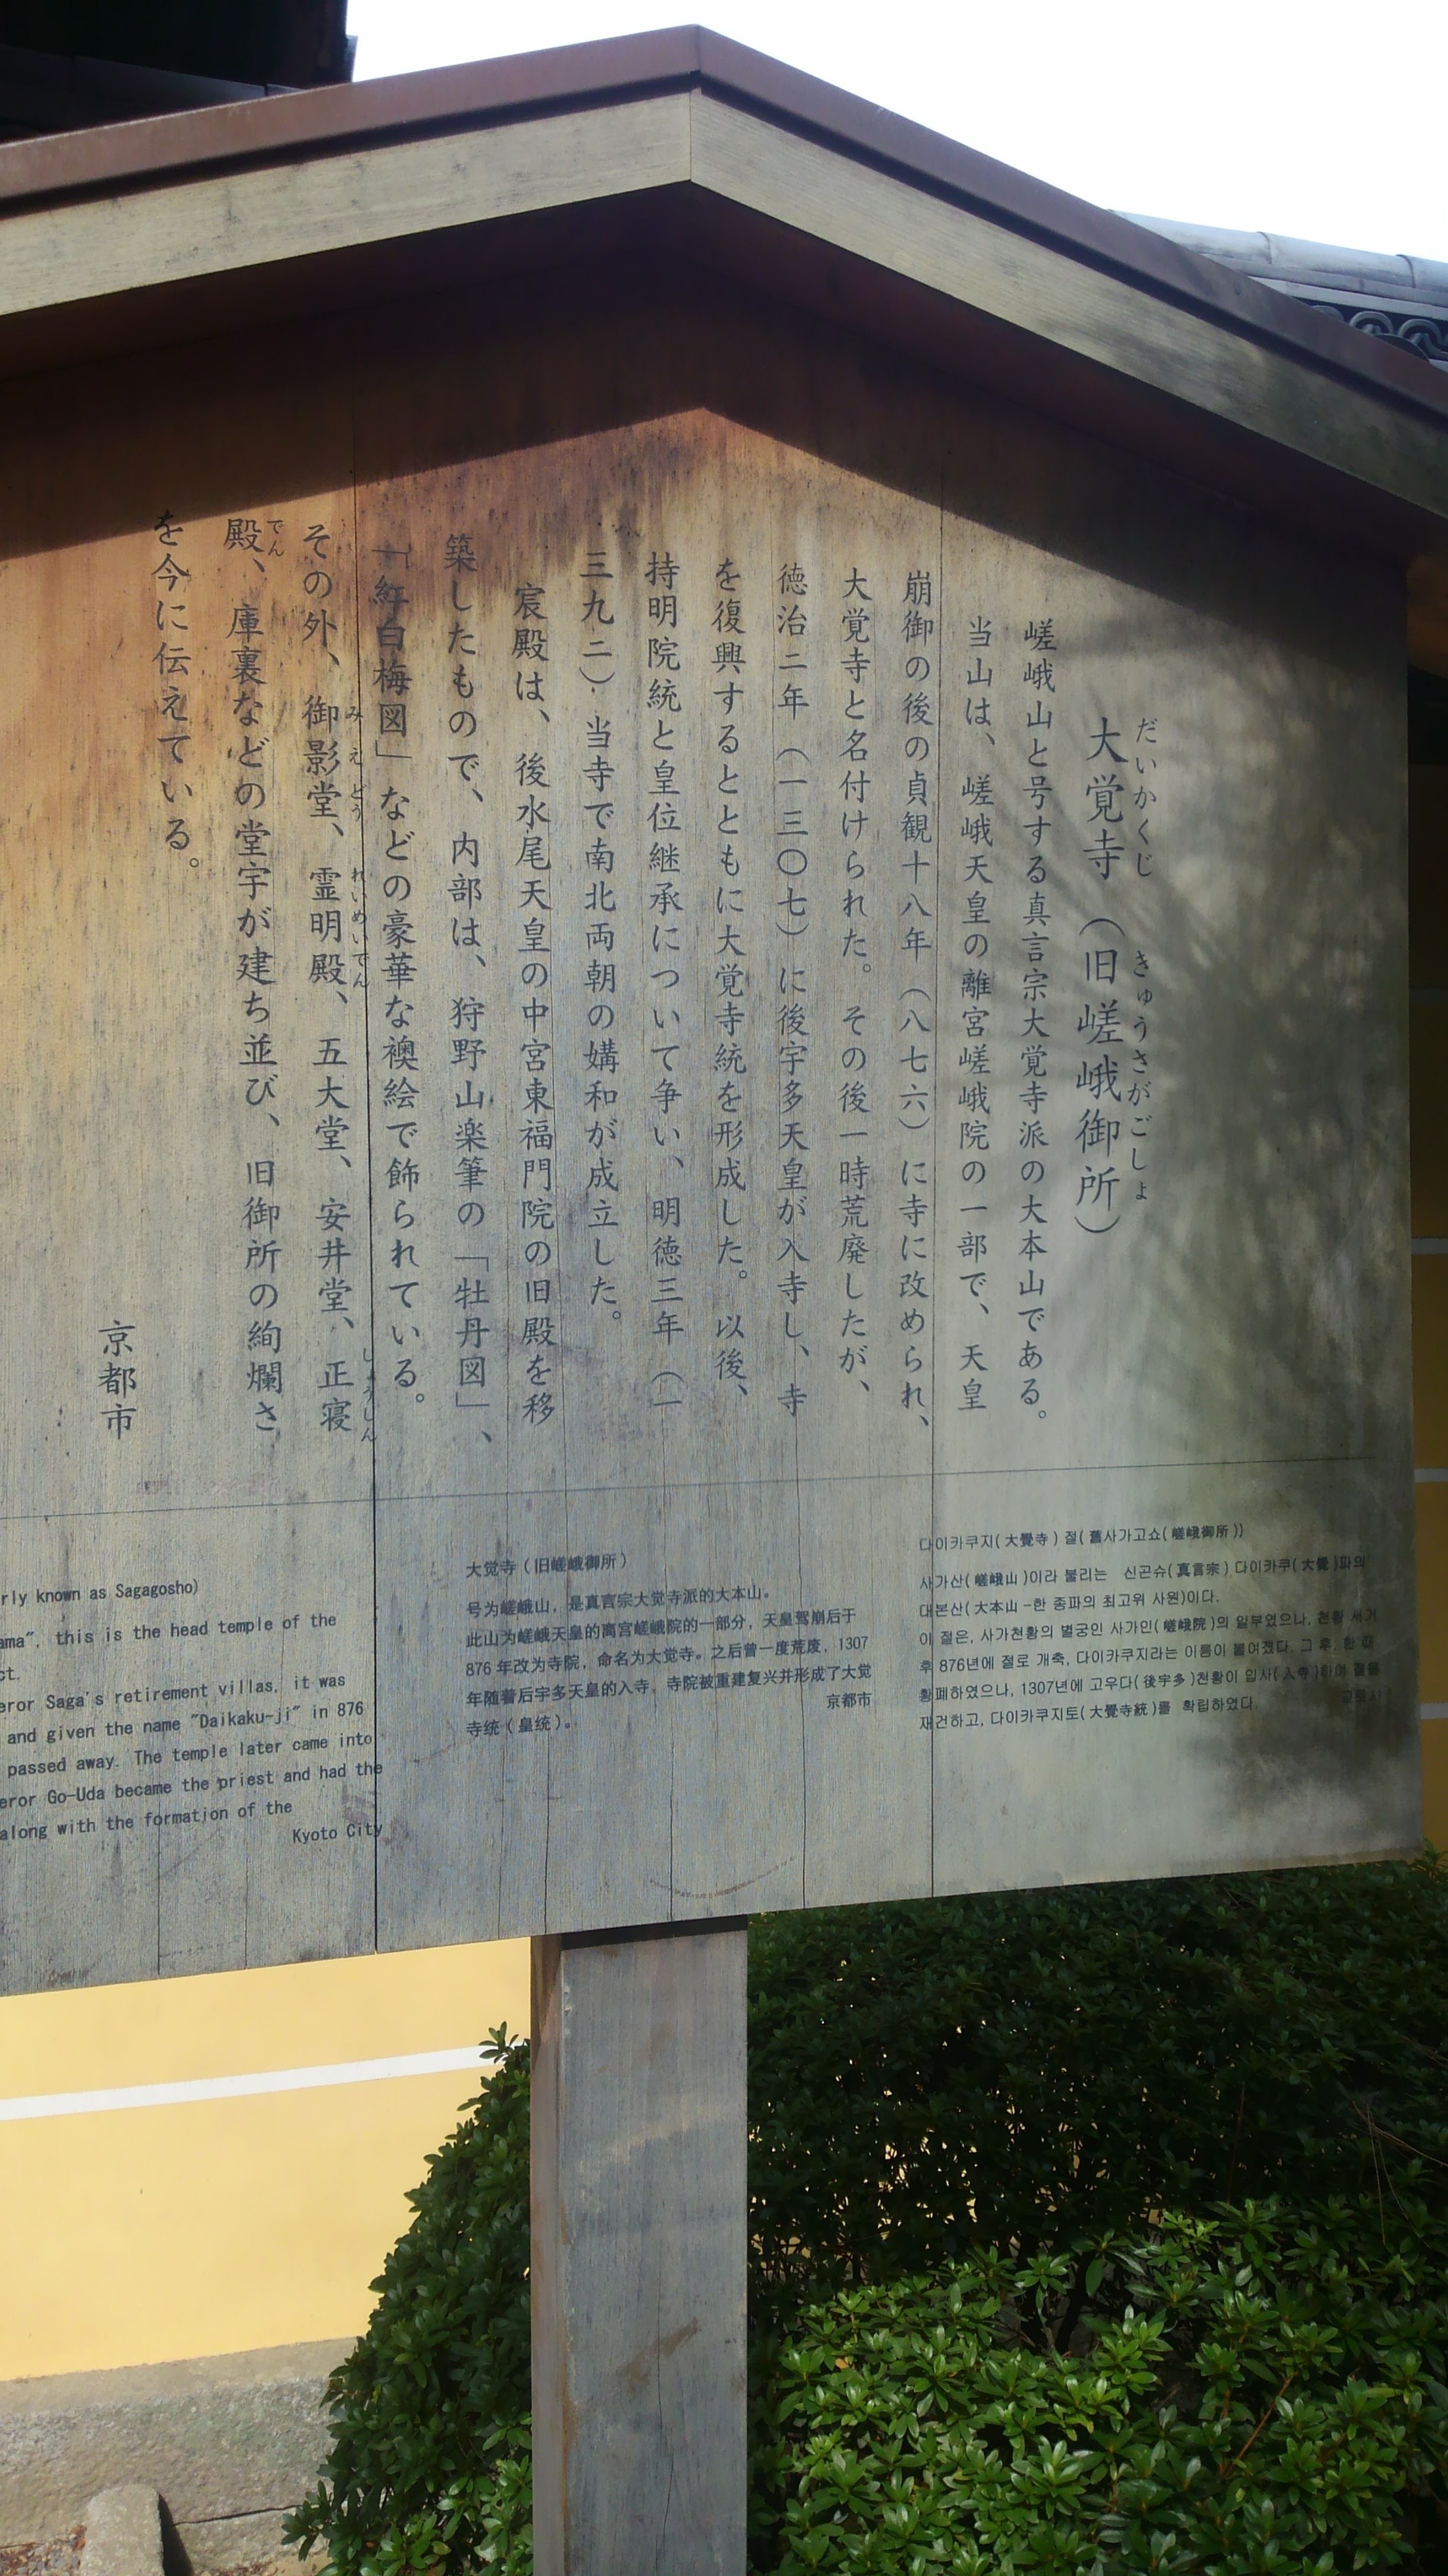 大覚寺(旧嵯峨御所)
だいかくじ きゅうさがごしょ
嵯峨山と号する真言宗大覚寺派の大本山である。
当山は、嵯峨天皇の離宮嵯峨院の一部で、天皇
崩御の後の貞観十八年(八七六)に寺に改められ、
大覚寺と名付けられた。その後一時荒廃したが、
徳治二年(一三〇七)に後宇多天皇が入寺し、寺
を復興するとともに大覚寺統を形成した。以後、
持明院統と皇位継承について争い、明徳三年(一
三九二)、当寺で南北両朝の媾和が成立した。
宸殿は、後水尾天皇の中宮東福門院の旧殿を移
築したもので、内部は、狩野山楽筆の「牡丹図」、
「紅白梅図」などの豪華な襖絵で飾られている。
その外、御影堂、霊明殿、五大堂、安井堂、正寝
みえどう れいめいでん しょうしん
殿、庫裏などの堂宇が建ち並び、旧御所の絢爛さ
でん
を今に伝えている。
京都市
rly known as Sagagosho)
ama", this is the head temple of the
ct.
eror Saga's retirement villas, it was
and given the name "Daikaku-ji" in 876
passed away. The temple later came into
eror Go-Uda became the priest and had the
along with the formation of the
Kyoto City
大觉寺(旧嵯峨御所)
号为嵯峨山,是真言宗大觉寺派的大本山。
此山为嵯峨天皇的离宫嵯峨院的一部分,天皇驾崩后于
876 年改为寺院,命名为大觉寺。之后曾一度荒废,1307
年随着后宇多天皇的入寺,寺院被重建复兴并形成了大觉
寺统(皇统)。
京都市
다이카쿠지(大覺寺) 절(舊사가고쇼(嵯峨御所))
사가산(嵯峨山)이라 불리는 신곤슈(真言宗) 다이카쿠(大覺)파의
대본산(大本山-한 종파의 최고위 사원)이다.
이 절은, 사가천황의 별궁인 사가인(嵯峨院)의 일부였으나, 천황 서거
후 876년에 절로 개축, 다이카쿠지라는 이름이 붙여졌다. 그 후, 한 때
황폐하였으나, 1307년에 고우다(後宇多)천황이 입사(入寺)하여 절을
재건하고, 다이카쿠지토(大覺寺統)를 확립하였다.
교토시